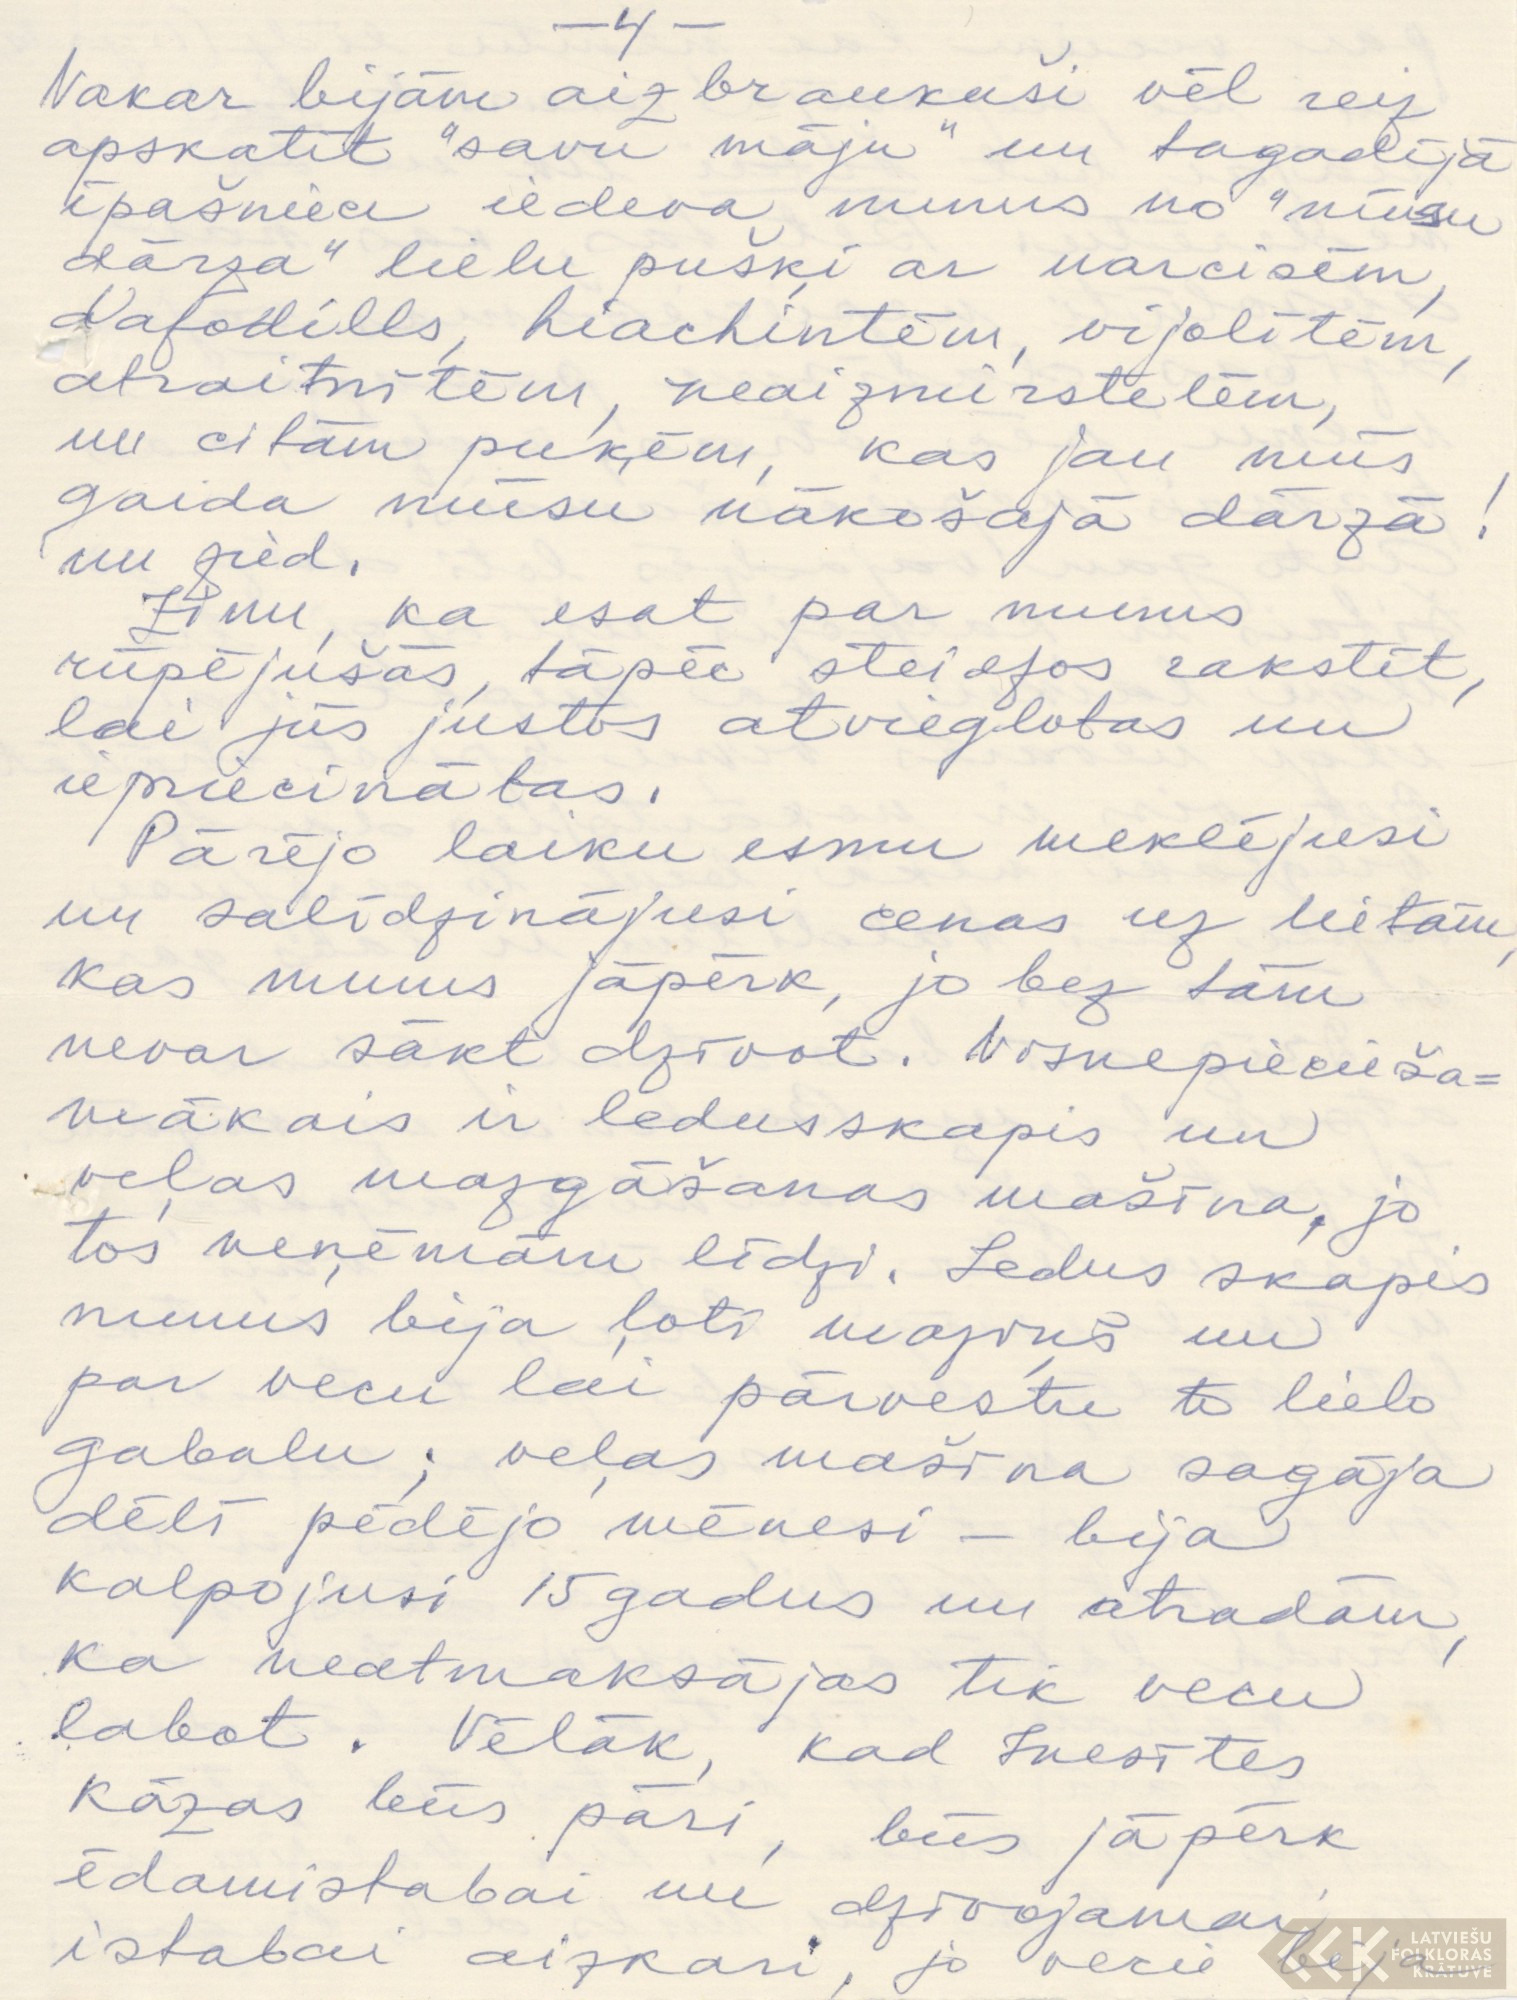 -4-
Vakar bijām aizbraukuši vēl reiz
apskatīt "savu māju" un tagadējā
īpašniece iedeva mums no "mūsu
dārza" lielu pušķi ar narcisēm,
Dafodills, hiachintēm, vijolītēm,
atraitnītēm, neaizmirstelēm,
un citām puķēm, kas jau mūs
gaida mūsu nākošajā dārzā!
un zied.
Zinu, ka esat par mums
rūpējušās, tāpēc steidzos rakstīt,
lai jūs justos atvieglotas un
iepriecinātas.
Pārējo laiku esmu meklējusi
un salīdzinājusi cenas uz lietām,
kas mums jāpērk, jo bez tām
nevar sākt dzīvot. Visnepiecieša=
mākais ir ledusskapis un
veļas mazgāšanas mašīna, jo
tos neņēmām līdzi. Ledus skapis
mums bija ļoti maziņš un
par vecu lai pārvestu to lielo
gabalu; veļas mašīna sagāja
dēlī pēdējo mēnesi - bija
kalpojusi 15 gadus un atradām,
ka neatmaksājas tik vecu
labot. Vēlāk, kad Inesītes
kāzas būs pāri, būs jāpērk
ēdamistabai un dzīvojamai
istabai aizkari, jo vecie bija
LATVIEŠU
FOLKLORAS
KRĀTUVE